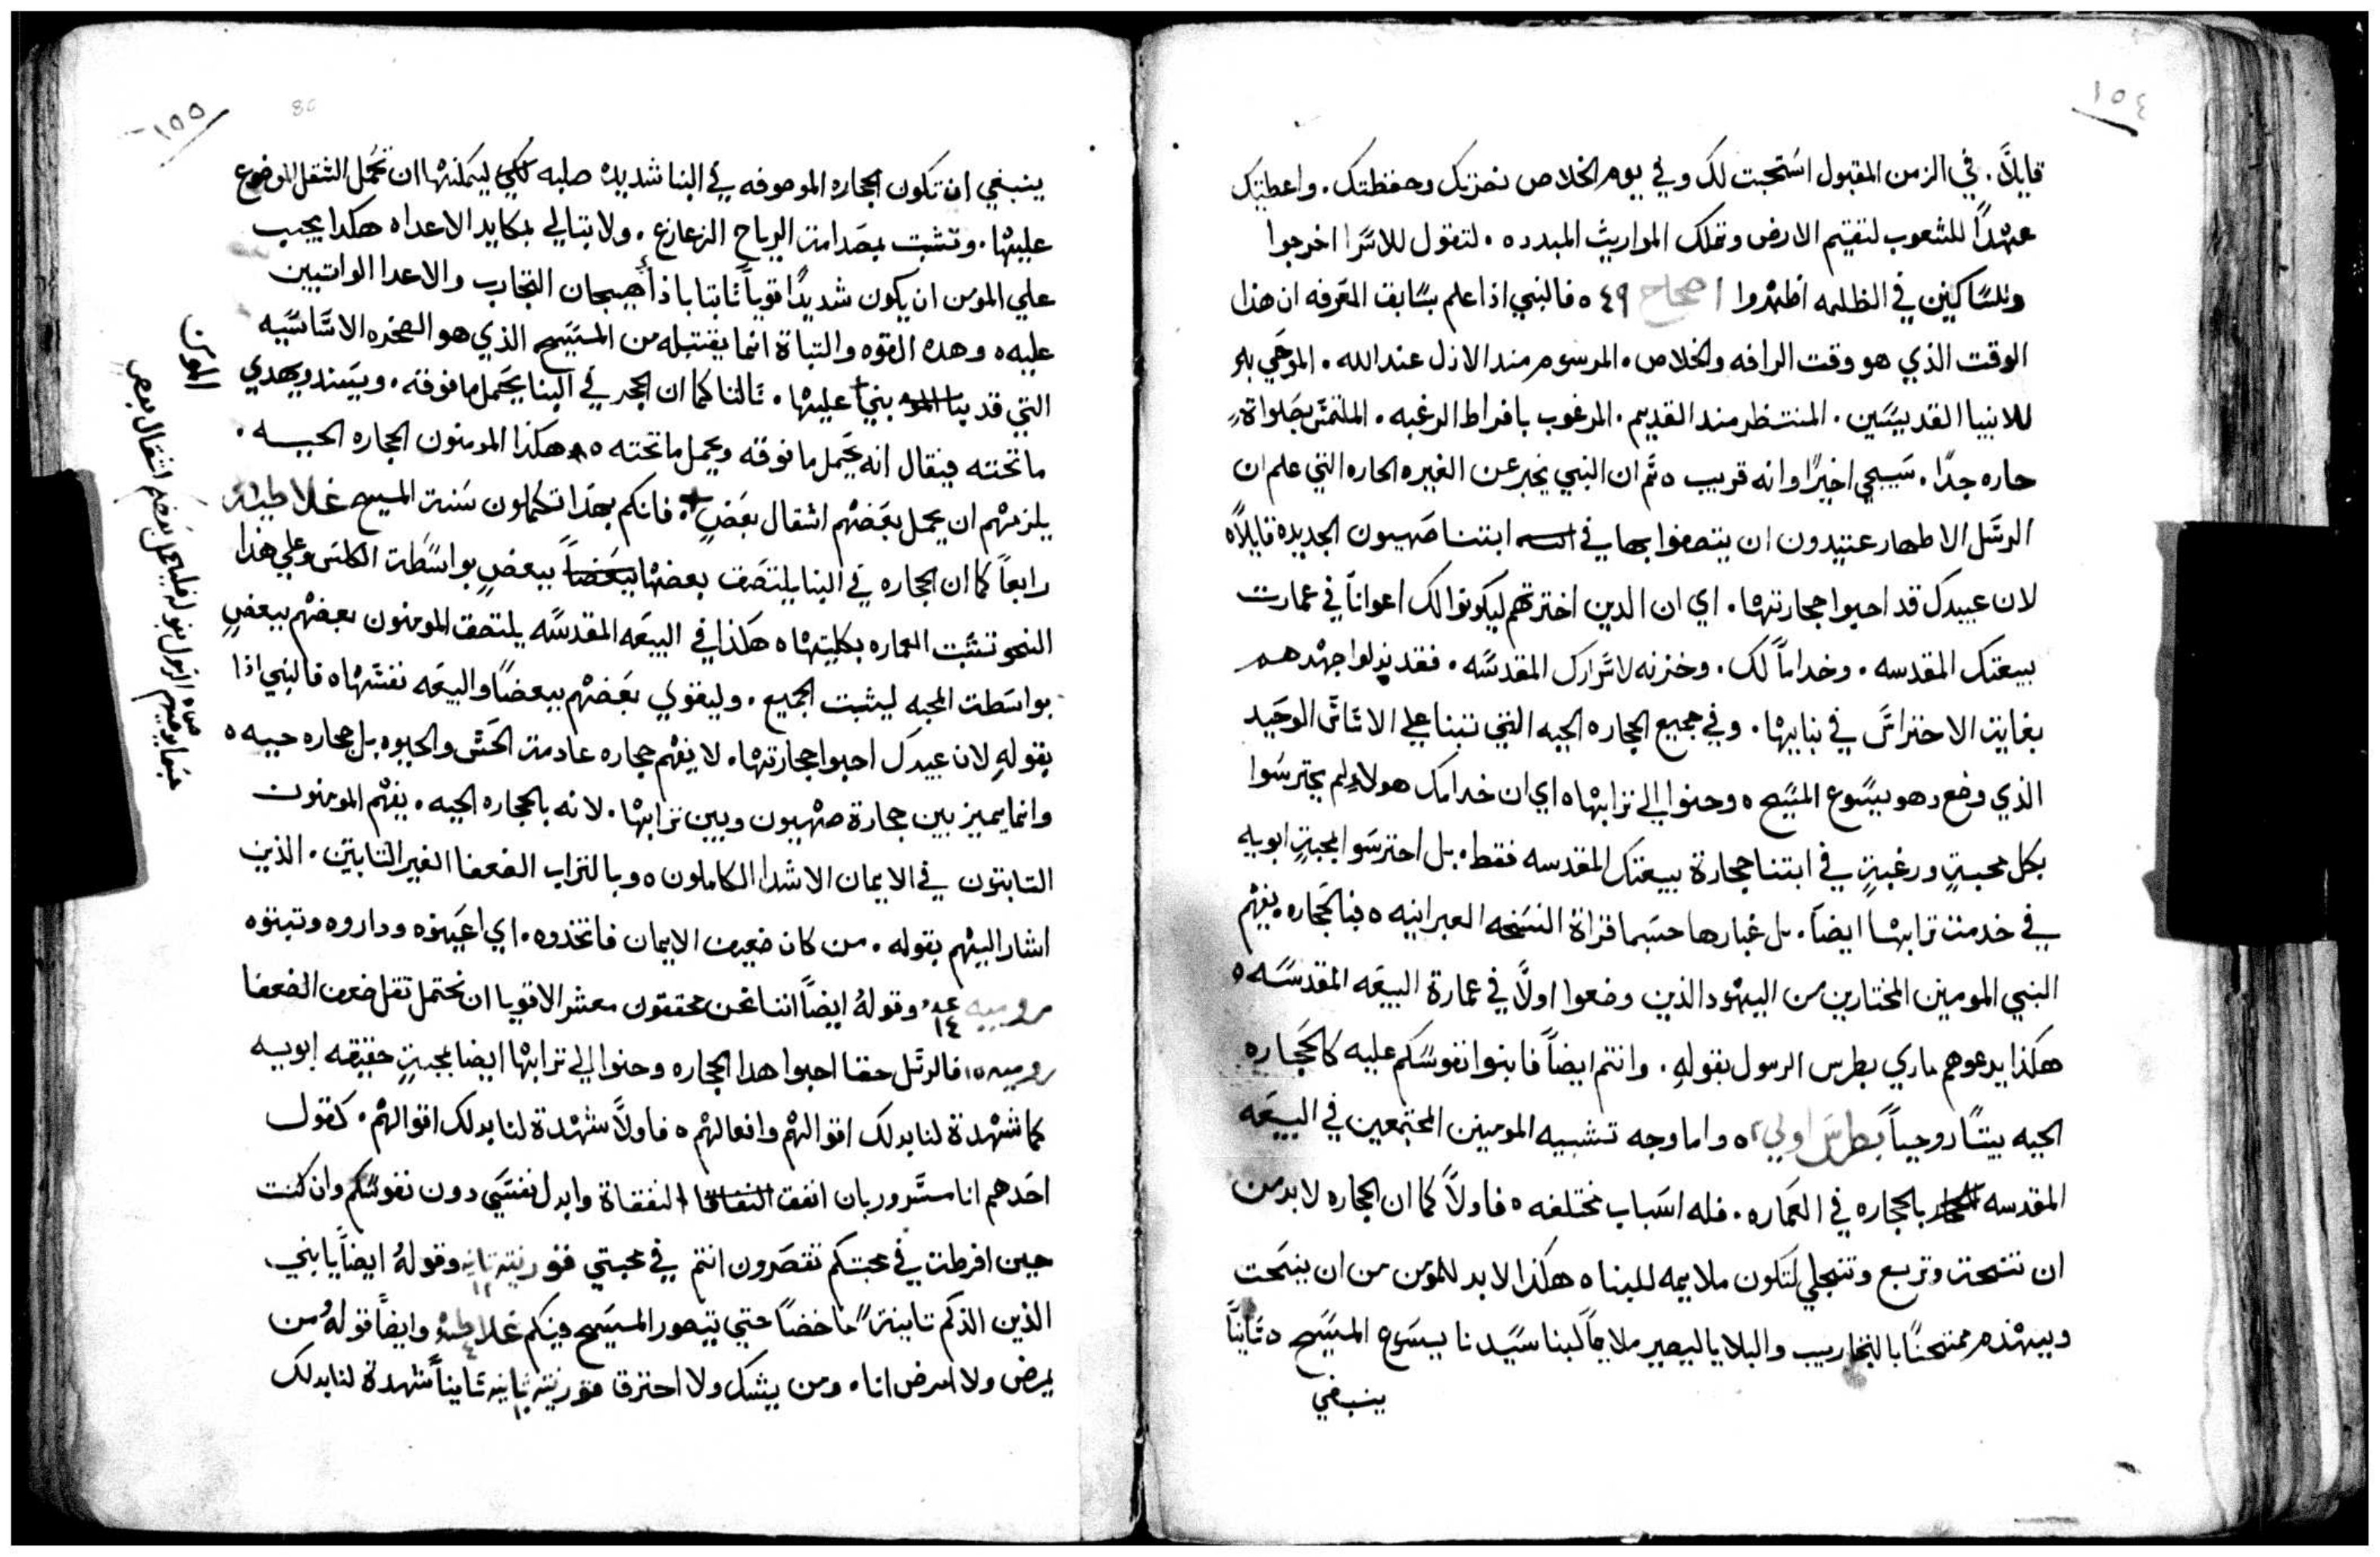 ١٥٤
قايلاً. في الزمن المقبول استجبت لك وفي يوم الخلاص نصرتك وحفظتك. واعطيتك
عهداً للشعوب لتقيم الارض وتملك المواريث المبدده. لتقول للاسرا اخرجوا
وللساكنين في الظلمه اظهروا اصحاح ٤٩ ه فالنبي اذا علم بسابق المعرفه ان هذا
الوقت الذي هو وقت الرافه والخلاص. المرسوم مند الازل عند الله. الموحي به
للانبيا القديسين. المنتظر مند القديم. المرغوب بافراط الرغبه. الملتمس بصلواة
حاره جداً. سيجي اخيراً وانه قريب ه ثم ان النبي يخبر عن الغيره الحاره التي علم ان
الرسل الاطهار عتيدون ان يتصفوا بها في ابتنا صهيون الجديده قايلاً ه
لان عبيدك قد احبوا حجارتها. اي ان الدين اخترتهم ليكونوا لك اعواناً في عمارت
بيعتك المقدسه. وخداماً لك. وخزنه لاسرارك المقدسه. فقد بدلوا جهدهم
بغاية الاحتراس في بنايها. وفي جميع الحجاره الحيه التي تبنا علي الاساس الوحيد
الذي وضع وهو يسوع المسيح ه وحنوا الي ترابها ه اي ان خدامك هولاء لم يحترسوا
بكل محبةٍ ورغبةٍ في ابتنا حجارة بيعتك المقدسه فقط. بل احترسوا بمحبةٍ ابويه
في خدمة ترابها ايضاً. بل غبارها حسبما قراة النسخه العبرانيه ه فبالحجاره يفهم
النبي المومنين المختارين من اليهود الذين وضعوا اولاً في عمارة البيعه المقدسه ه
هكذا يدعوهم ماري بطرس الرسول بقوله. وانتم ايضاً فابنوا نفوسكم عليه كالحجاره
الحيه بيتاً روحياً بطرس اولي ٢ ه واما وجه تشبيه المومنين المجتمعين في البيعه
المقدسه بالحجاره في العماره. فله اسباب مختلفه ه فاولاً كما ان الحجاره لابد من
ان تنحت وتربع وتنجلي لتكون ملايمه للبنا ه هكذا لابد للمومن من ان ينحت
ويتهندم ممتحناً بالتجاريب والبلايا ليصير ملايماً لبنا سيدنا يسوع المسيح ه ثانياً
ينبغي
١٥٥
ينبغي ان تكون الحجاره الموصوفه في البنا شديده صلبه لكي يمكنها ان تحمل الثقل الموضوع
عليها. وتثبت بمصدامة الرياح الزعازع. ولا تبالي بمكايد الاعداه هكدا يجب
علي المومن ان يكون شديداً قوياً ثابتا باذا هيجان التجارب والاعدا الواثبين
عليه ه وهده القوه والتباة انما يقتبله من المسيح الذي هو الصخره الاساسيه
التي قد بنينا عليها. ثالثا كما ان الحجر في البنا يحمل ما فوقه. ويسند ويهدي
ما تحته فيقال انه يحمل ما فوقه ويحمل ما تحته ه هكذا المومنون الحجاره الحيه.
يلزمهم ان يحمل بعضهم اثقال بعضٍ. فانكم بهذا تكملون سنة المسيح غلاطيه
رابعاً كما ان الحجاره في البنا يلتصق بعضها ببعضٍ بواسطة الكلس وعلي هذا
النحو تثبت العماره بكليتها ه هكذا في البيعه المقدسه يلتصق المومنون بعضهم ببعضٍ
بواسطة المحبه ليثبت الجميع. وليقوي بعضهم بعضاً والبيعه نفسها ه فالنبي اذا
بقوله لان عبيدك احبوا حجارتها. لا يفهم حجاره عادمة الحس والحيوه بل حجاره حييه ه
وانما يميز بين حجارة صهيون وبين ترابها. لانه بالحجاره الحيه. يفهم المومنون
التابتون في الايمان الاشدا الكاملون ه وبالتراب الضعفا الغير التابتين. الذين
اشار اليهم بقوله. من كان ضعيف الايمان فاتخذوه. اي اعينوه وداروه وتبتوه
رومبيه ١٤ وقوله ايضاً اننا نحن محققون معشر الاقويا ان نحتمل ثقل ضعف الضعفا
روميه ١٥ فالرسل حقا احبوا هدا الحجاره وحنوا الي ترابها ايضا بمحبةٍ حقيقه ابويه
كما شهدة لنا بدلك اقوالهم وافعالهم ه فاولاً شهدة لنا بدلك اقوالهم. كقول
احدهم انا مسرور بان انفق النفقاة وابدل نفسي دون نفوسكم وان كنت
حين افرطت في محبتكم تقصرون انتم في محبتي قورنتيه تانيه ١٢ وقوله ايضاً يا بني
الذين الدكم تانيةً ماخضاً حتي يتصور المسيح فيكم غلاطيه ٤ وايضاً قوله من
يمرض ولا امرض انا. ومن يشك ولا احترق قورنتيه تانيه تانياً شهدة لنا بدلك
المومن
حسبما يوصيهم الرسول بقوله فليحمل بعضكم اثقال بعض